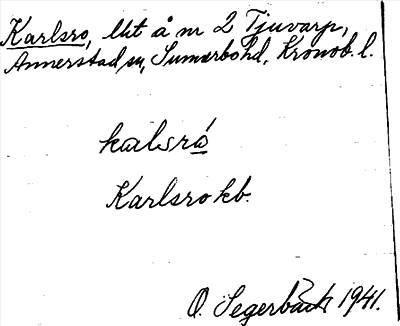 Karlsro, lht å nr 2 Tjuvarp,
Annerstad sn, Sunnerbo hd, Kronob. l.
kalsró
Karlsro kb.
O. Segerbäck 1941.